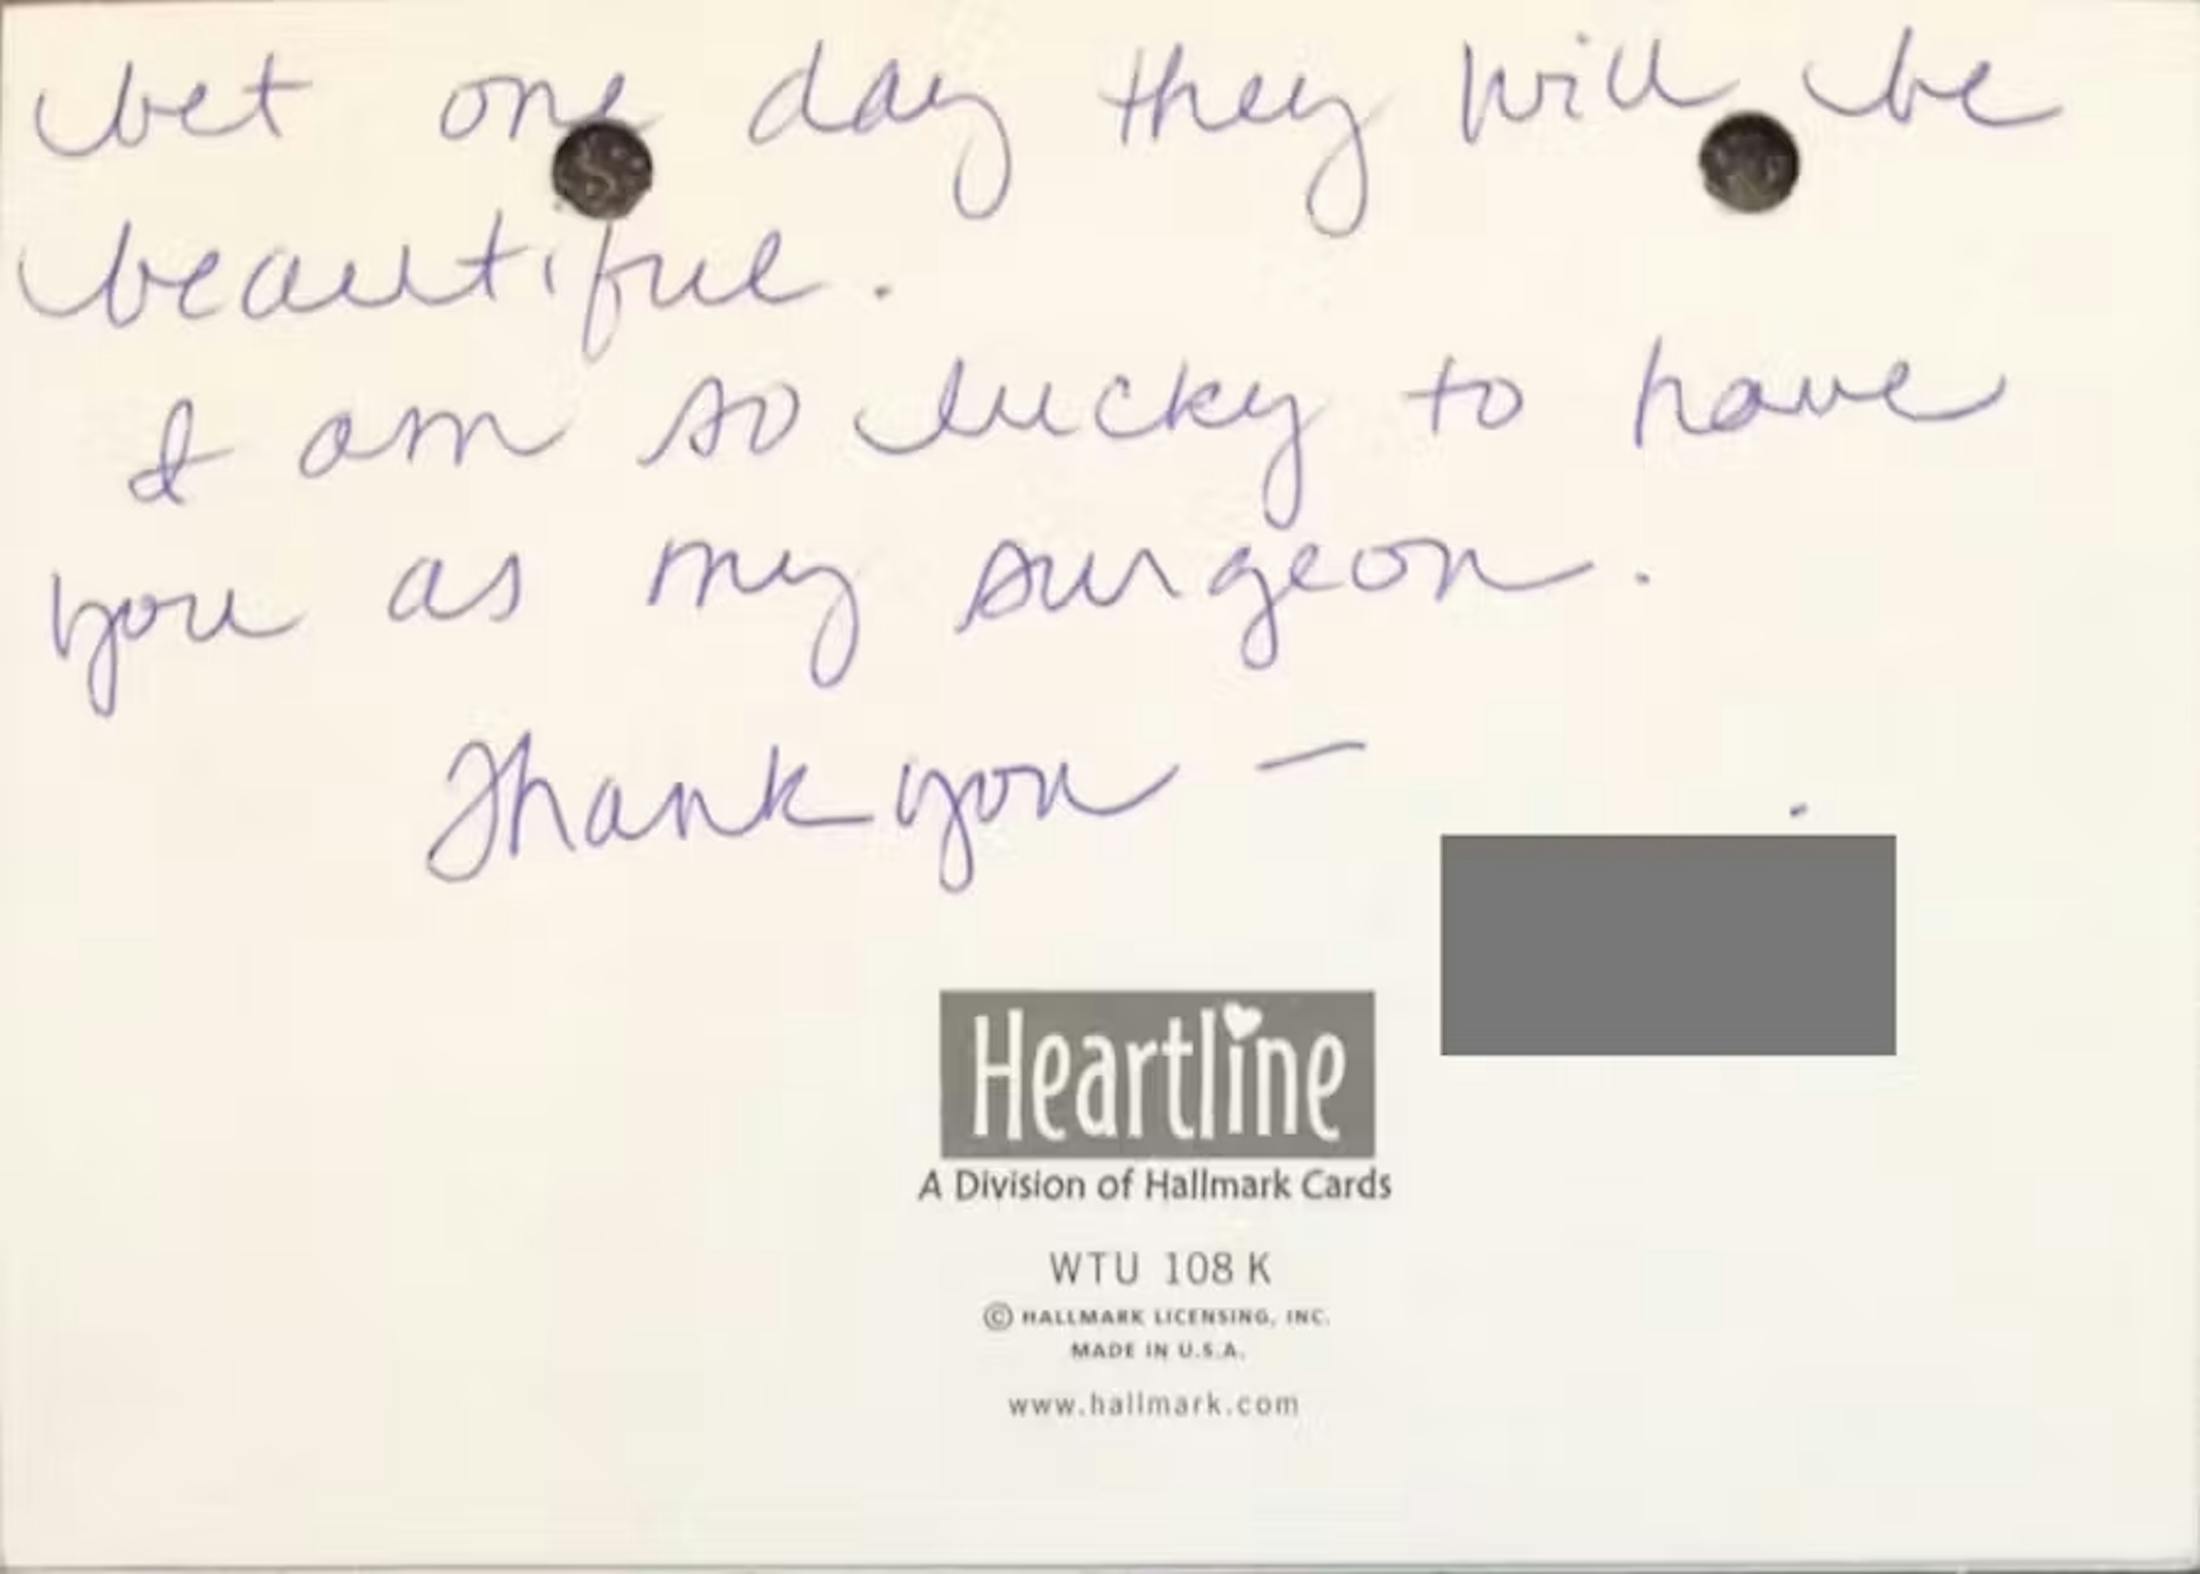 bet one day they will be
beautiful.
I am so lucky to have
you as my surgeon.
Thank you —
Heartline
A Division of Hallmark Cards
WTU 108 K
© HALLMARK LICENSING, INC.
MADE IN U.S.A.
www.hallmark.com